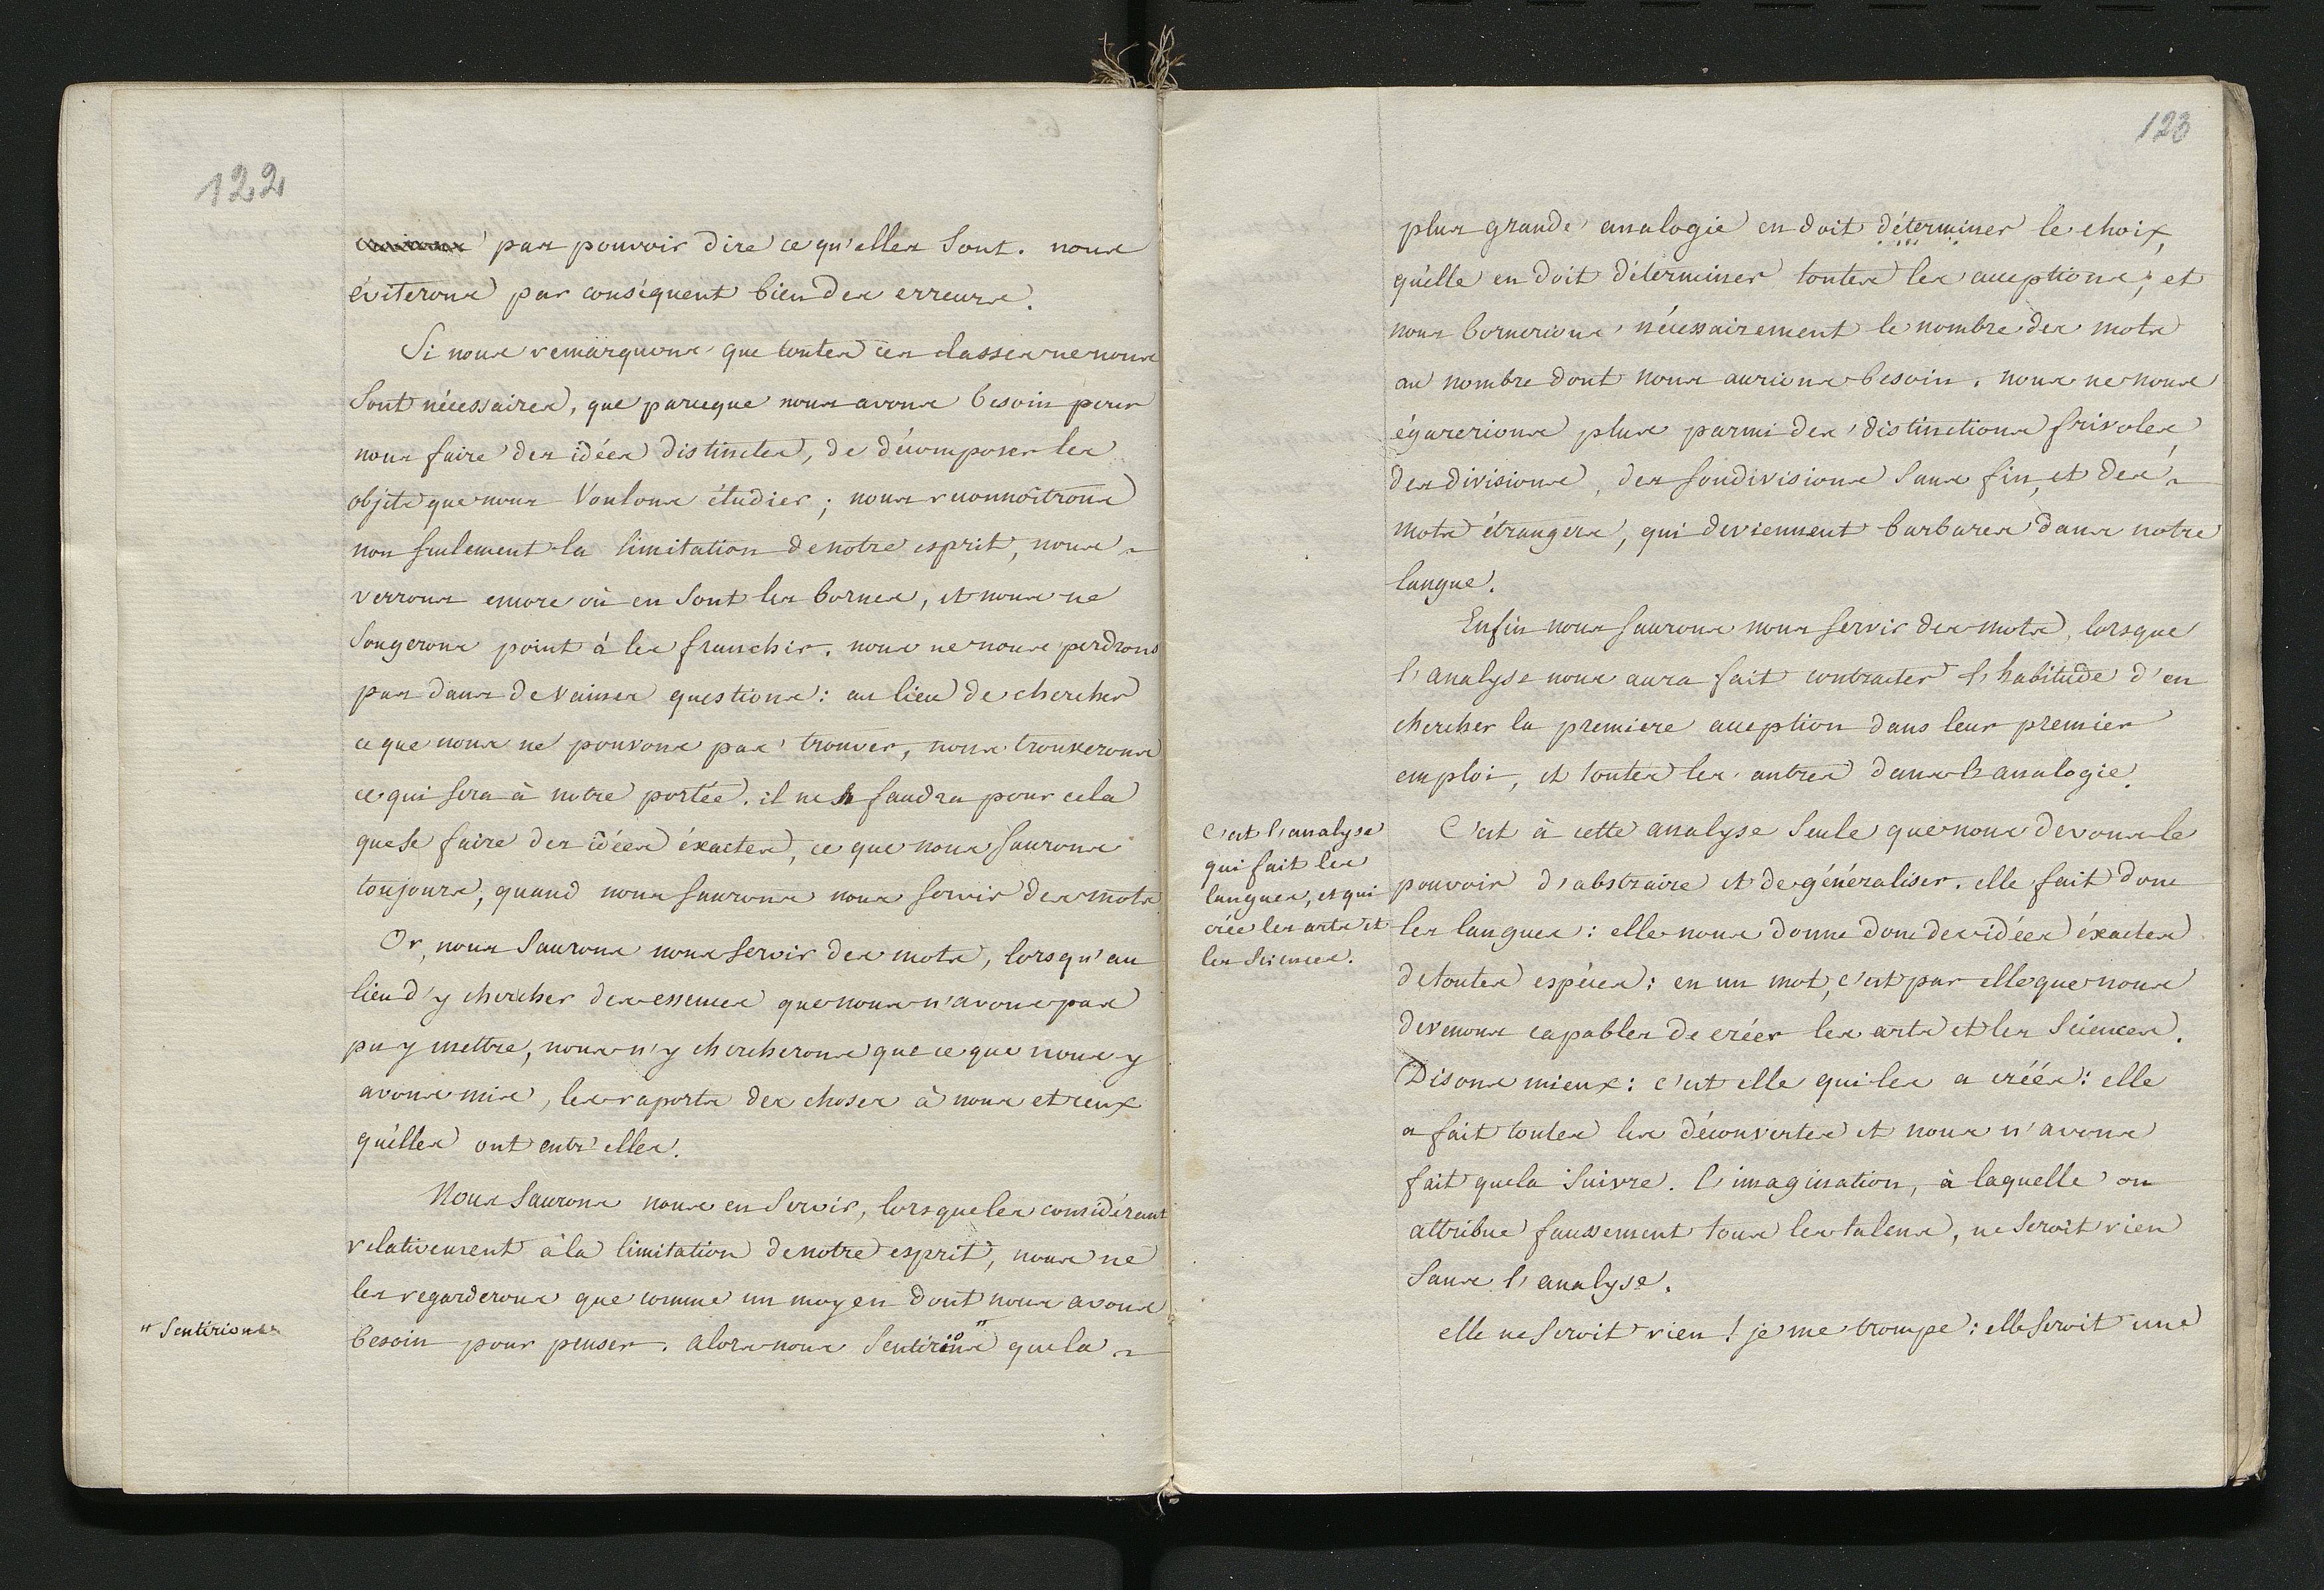 122
pas pouvoir dire ce qu'elles sont. nous
éviterons par conséquent bien des erreurs.
Si nous remarquons que toutes ces classes ne nous
sont nécessaires, que parceque nous avons besoin pour
nous faire des idées distinctes, de décomposer les
objets que nous voulons étudier ; nous reconnoîtrons
non seulement la limitation de notre esprit, nous
verrons encore où en sont les bornes, et nous ne
songerons point à les franchir. nous ne nous perdrons
pas dans de vaines questions : au lieu de chercher
ce que nous ne pouvons pas trouver, nous trouverons
ce qui sera à notre portée. il ne faudra pour cela
que se faire des idées éxactes, ce que nous saurons
toujours, quand nous saurons nous servir des mots
Or, nous saurons nous servir des mots, lorsqu'au
lieu d'y chercher des essences que nous n'avons pas
pu y mettre, nous n'y chercherons que ce que nous y
avons mis, les raports des choses à nous et ceux
qu'elles ont entr'elles.
Nous saurons nous en servir, lorsque les considérant
relativement à la limitation de notre esprit, nous ne
les regarderons que comme un moyen dont nous avons
besoin pour penser. alors nous sentirions " que la
" sentirions
123
plus grande analogie en doit déterminer le choix,
qu'elle en doit déterminer toutes les acceptions ; et
nous bornerions nécessairement le nombre des mots
au nombre dont nous aurions besoin. nous ne nous
égarerions plus parmi des distinctions frivoles,
des divisions, des soudivisions sans fin, et des
mots étrangers, qui deviennent barbares dans notre
langue.
Enfin nous saurons nous servir des mots, lorsque
l'analyse nous aura fait contracter l'habitude d'en
chercher la premiere acception dans leur premier
emploi, et toutes les autres dans l'analogie.
C'est l'analyse
qui fait les
langues, et qui
crée les arts et
les sciences.
C'est à cette analyse seule que nous devons le
pouvoir d'abstraire et de généraliser. elle fait donc
les langues : elle nous donne donc des idées éxactes
de toutes espéces : en un mot, c'est par elle que nous
devenons capables de créer les arts et les sciences.
Disons mieux : c'est elle qui les a créés : elle
a fait toutes les découvertes et nous n'avons
fait que la suivre. l'imagination, à laquelle on
attribue faussement tous les talens, ne seroit rien
sans l'analyse.
elle ne seroit rien ! je me trompe : elle seroit une